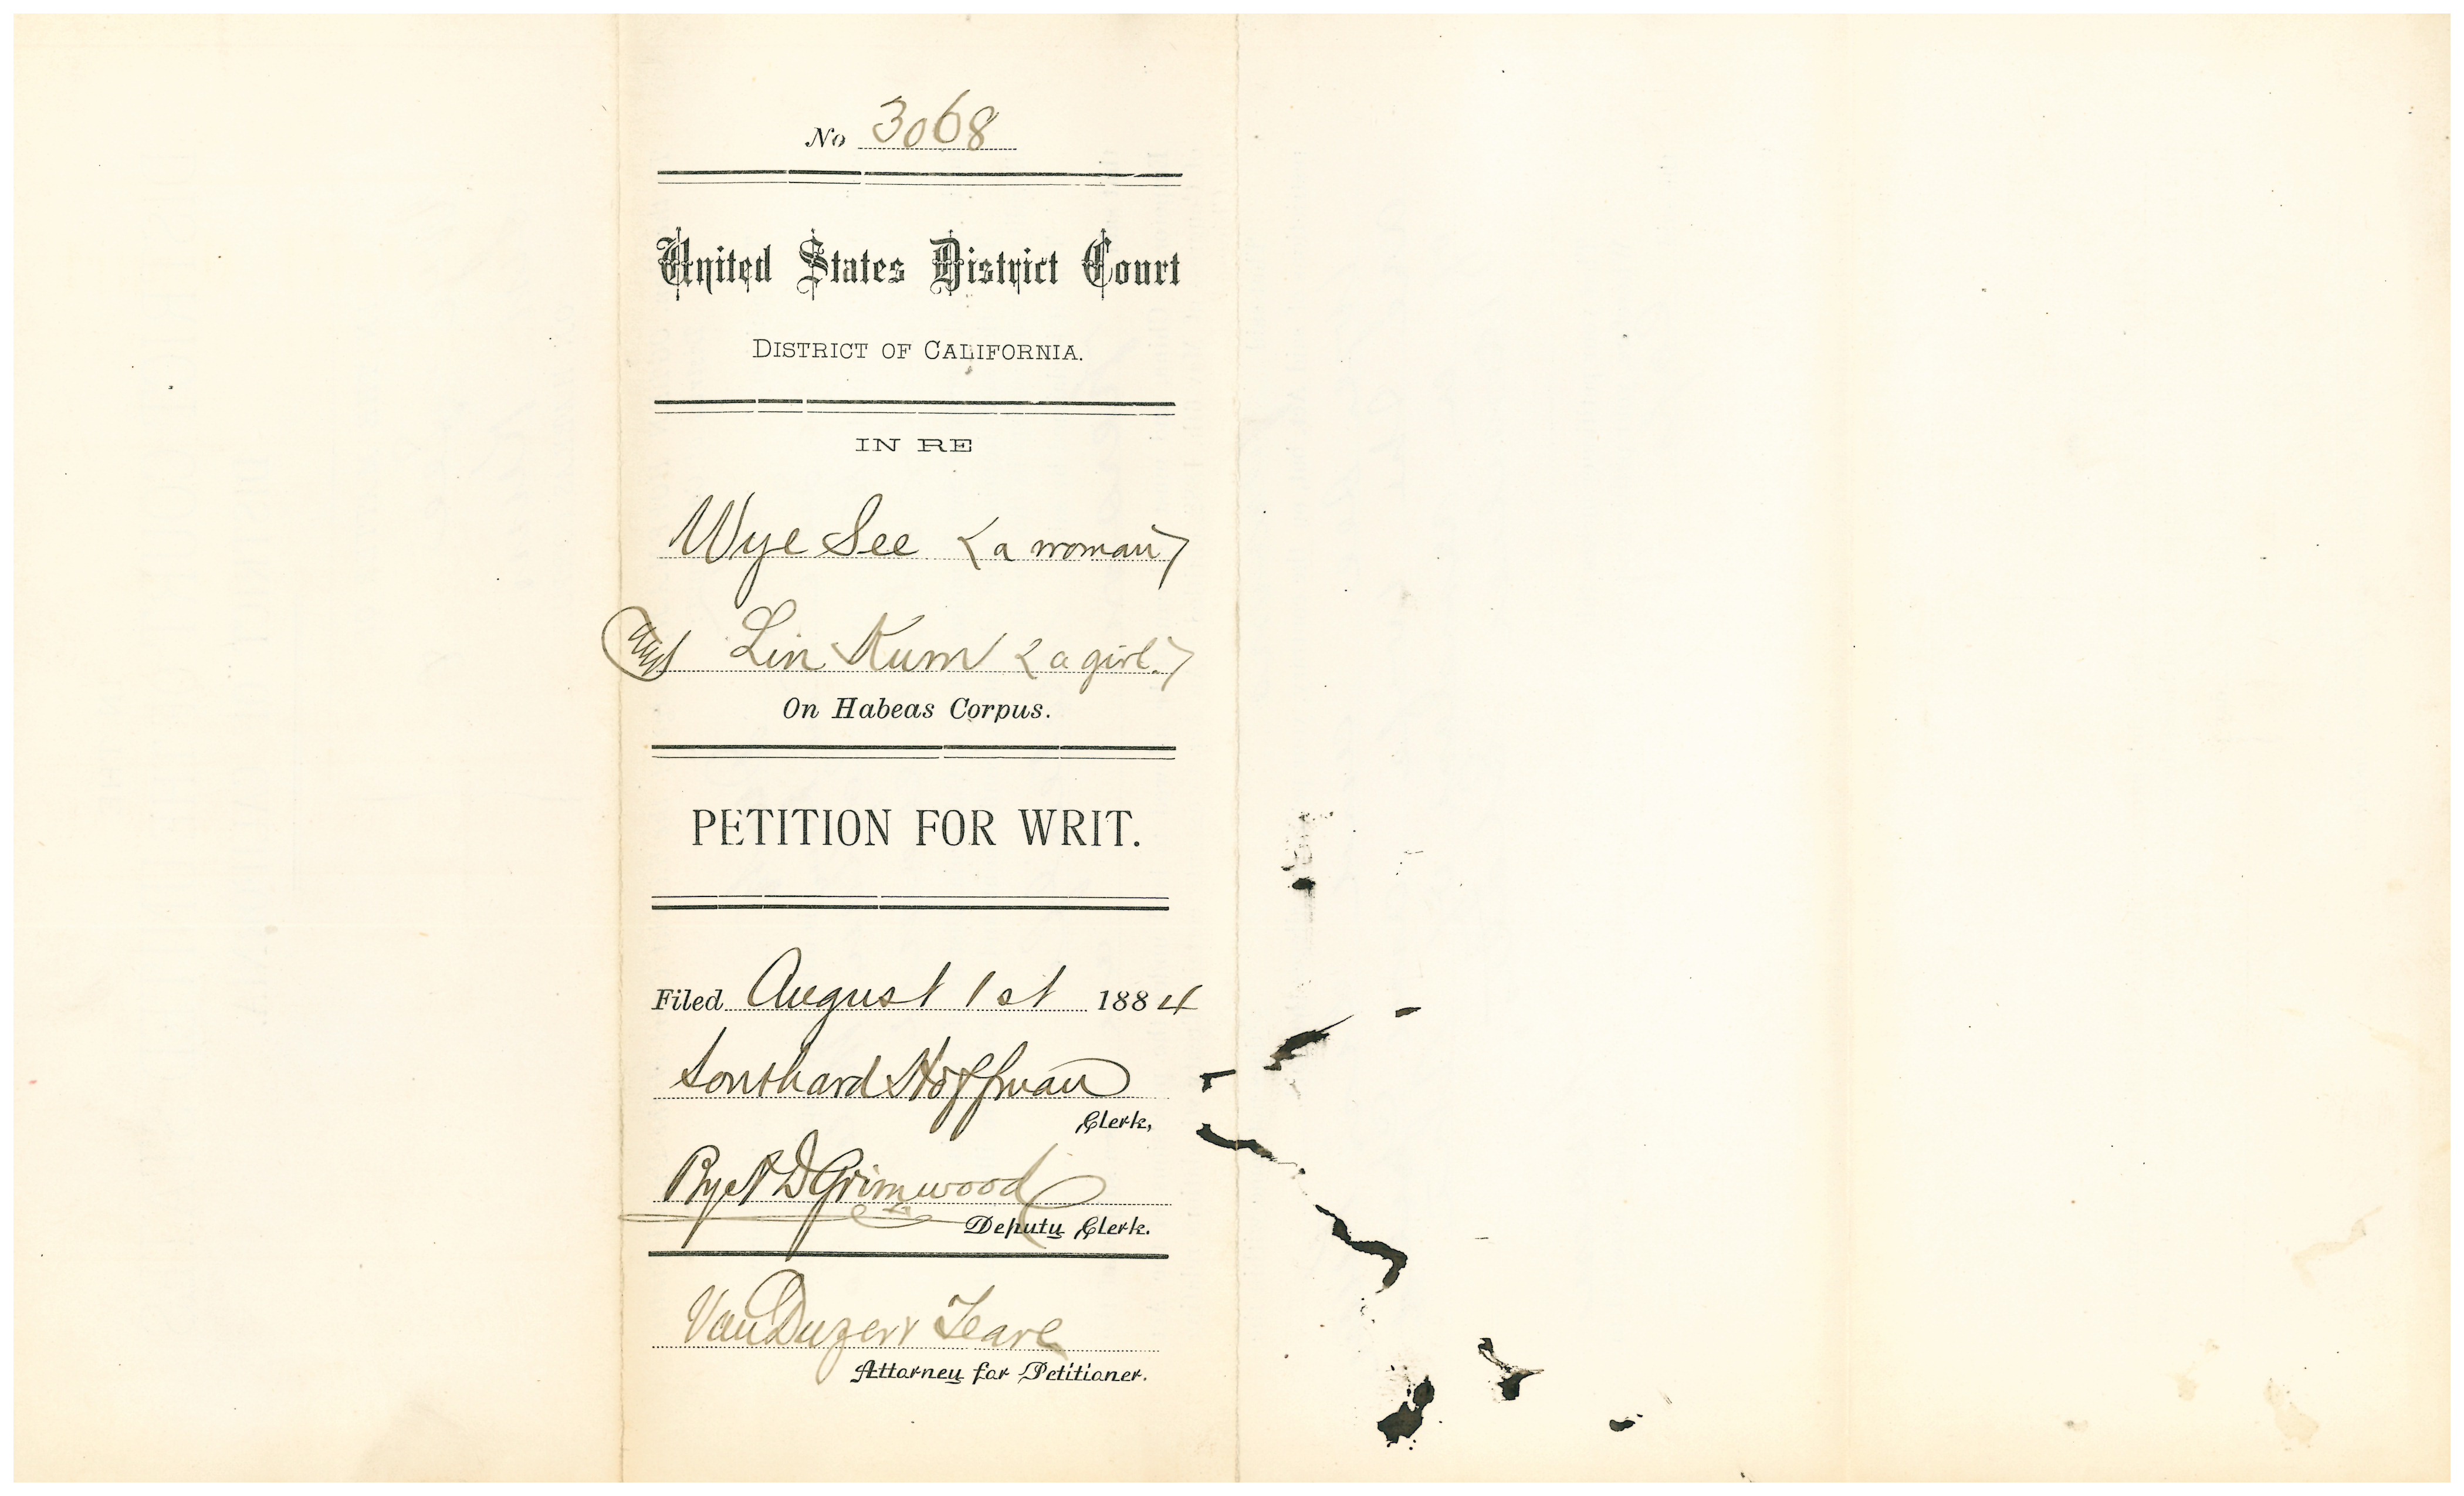 No 3068
United States District Court
DISTRICT OF CALIFORNIA.
IN RE
Wye See (a woman)
Lin Kum (a girl.)
On Habeas Corpus.
PETITION FOR WRIT.
Filed August 1st 1884
Southard Hoffman
Clerk,
By D Grimwood
Deputy Clerk.
Van Duzer & Teare
Attorney for Petitioner.